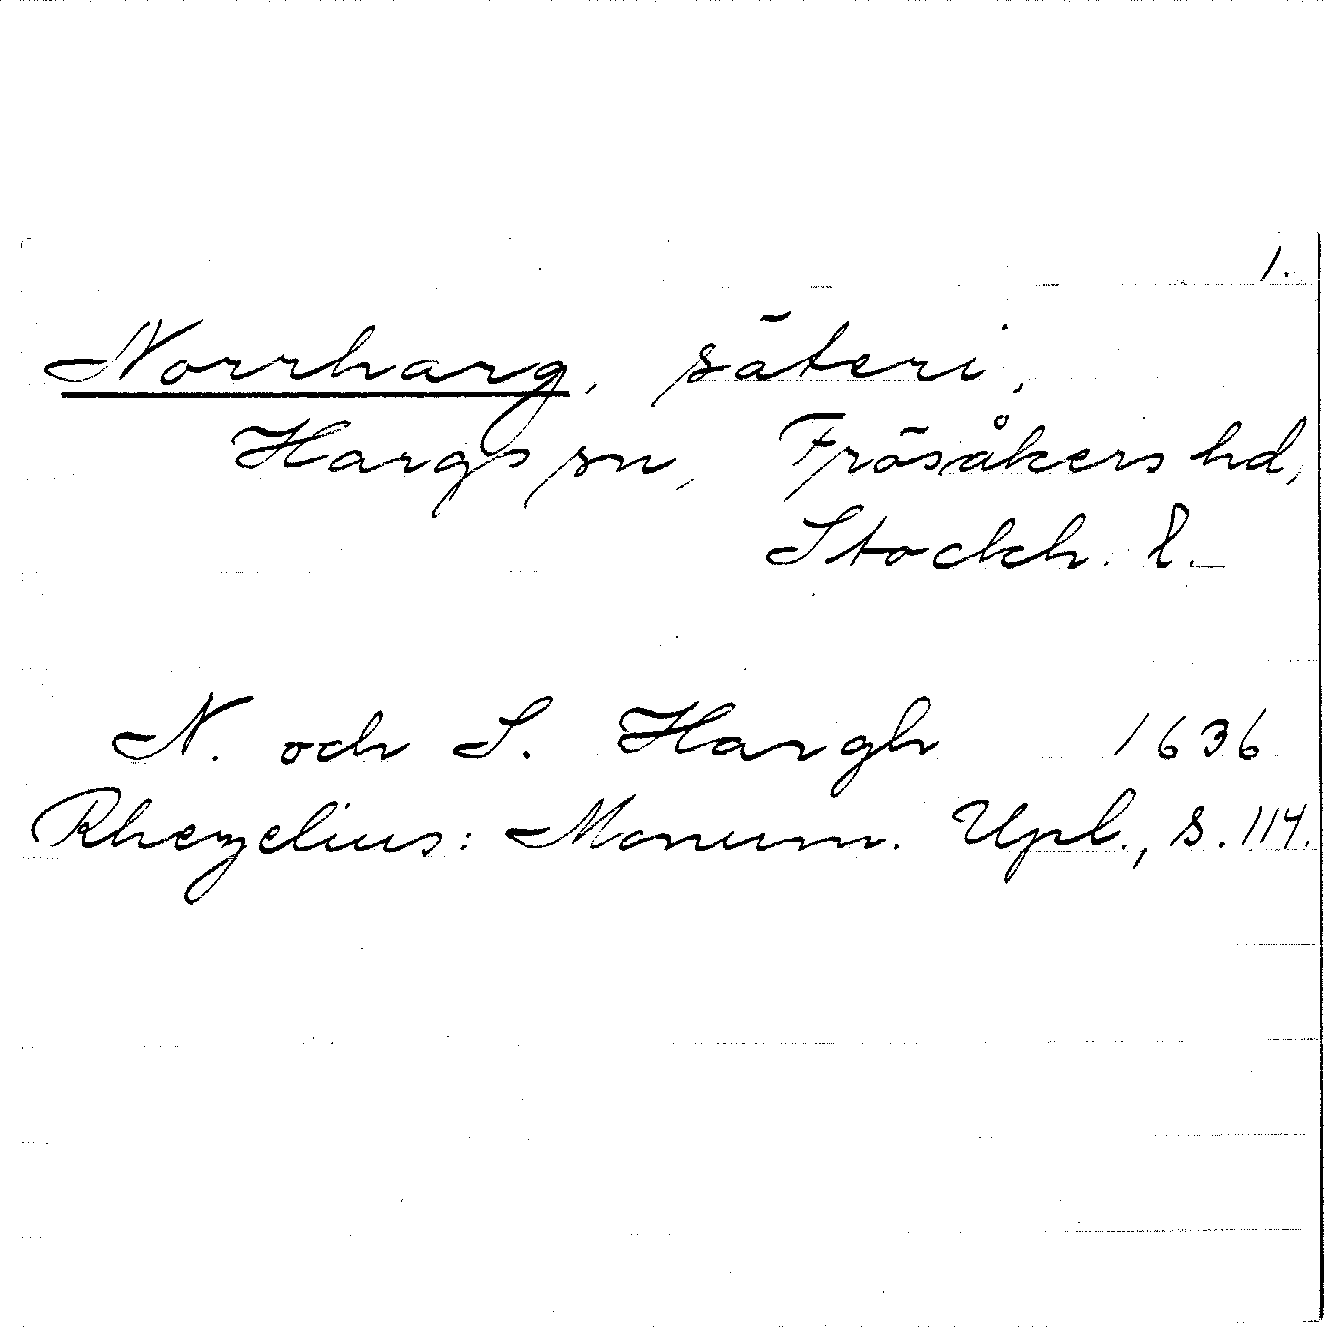 1.
Norrharg, säteri,
Hargs sn, Frösåkers hd,
Stockh. l.
N. och S. Hargh 1636
Rhezelius: Monum. Upl., s. 114.